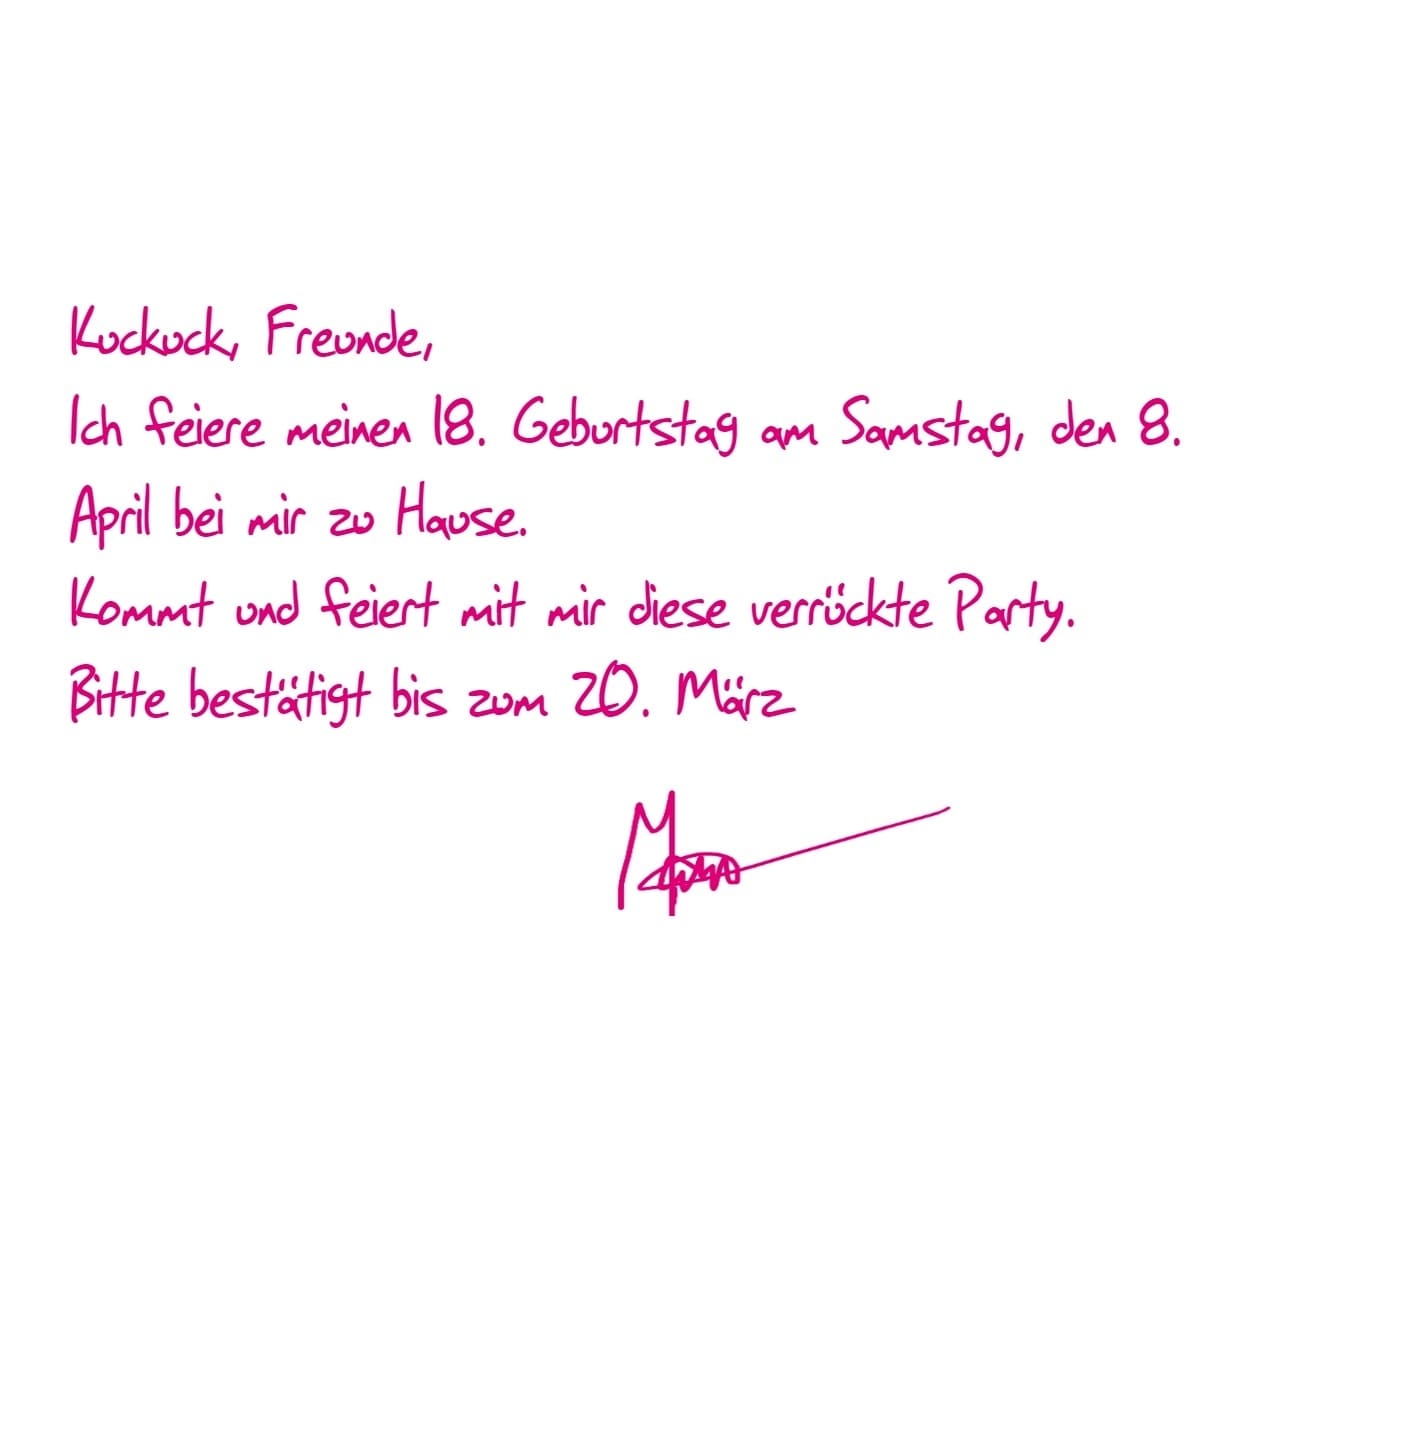 Kuckuck, Freunde,
Ich feiere meinen 18. Geburtstag am Samstag, den 8.
April bei mir zu Hause.
Kommt und feiert mit mir diese verrückte Party.
Bitte bestätigt bis zum 20. März